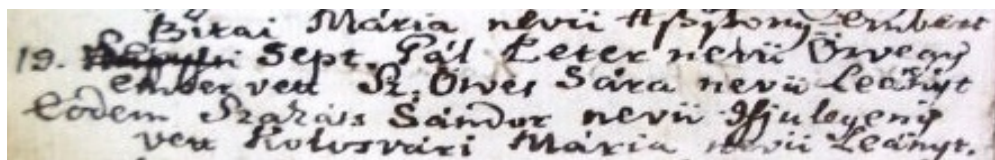 Bitai Mária nevü Aszszony embert
19. Sept. Pál Péter nevü Özvegy
ember vett Sz. Öwes Sára nevü Leányt
Eodem Szakáts Sándor nevü Ifjulegény
vett Kolosvári Mária nevü Leányt.